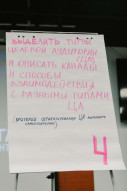 ВЫДЕЛИТЬ ТИПЫ
ЦЕЛЕВОЙ АУДИТОРИИ
(ЦА)
И ОПИСАТЬ КАНАЛЫ
И СПОСОБЫ
ВЗАИМОДЕЙСТВИЯ
С РАЗНЫМИ ТИПАМИ
ЦА
(КРИТЕРИЙ СЕГМЕНТИРОВАНИЯ ЦА
САМОСТОЯТЕЛЬНО)
4